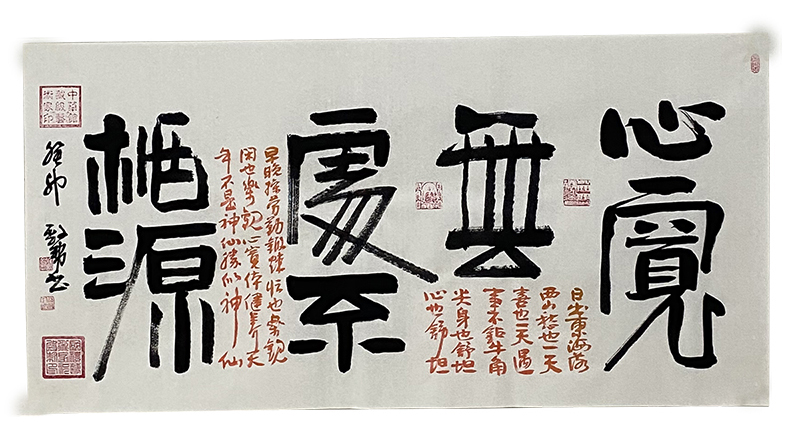 心寬
無
處不
桃源
日出東海落
西山愁也一天
喜也一天遇
事不鉆牛角
尖身也舒坦
心也舒坦
早晚操勞勤鍛煉忙也樂觀
閑也樂觀心寬体健養天
年不是神仙勝似神仙
癸卯
書